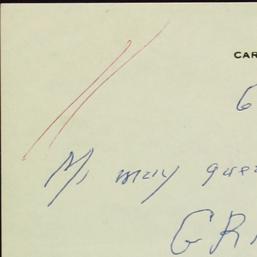 CAR
6
My may que
GRA